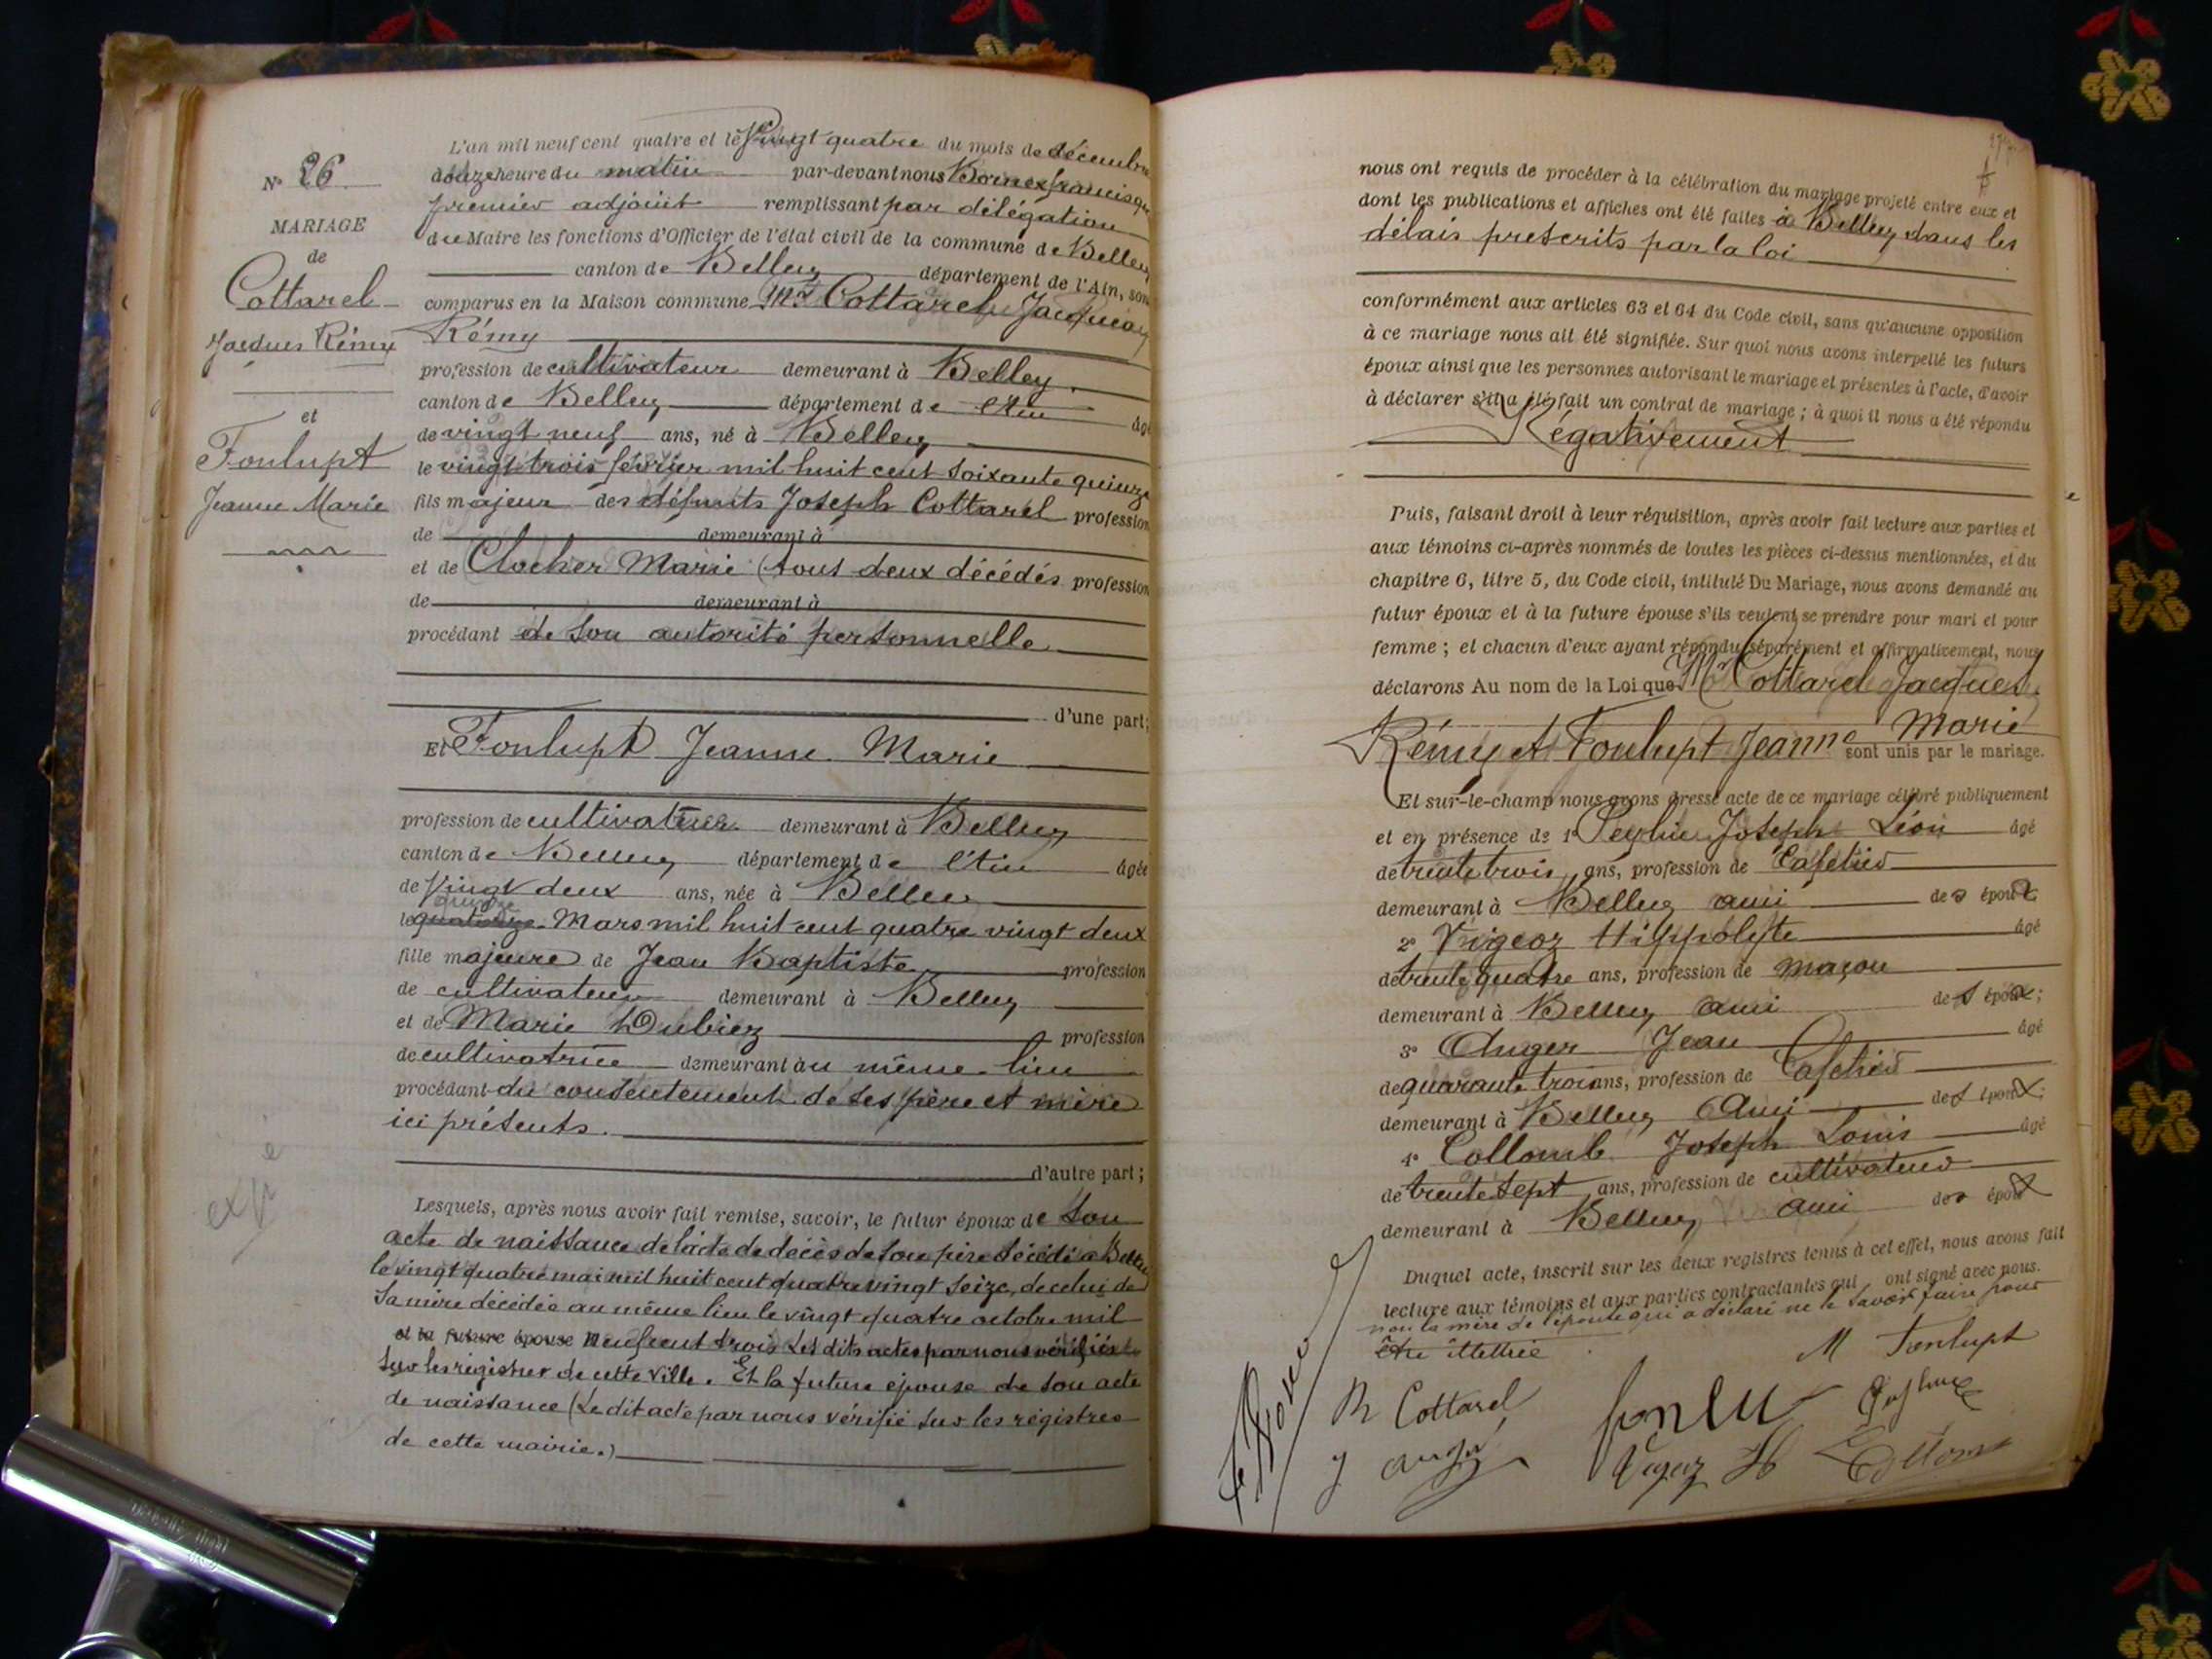 N° 26
MARIAGE
de
Cottarel
Jacques Rémy
et
Foulupt
Jeanne Marie
L'an mil neuf cent quatre et le Vingt quatre du mois de décembre
heure du matin par-devant nous Bornex francisque
premier adjoint remplissant par délégation
du Maire les fonctions d'Officier de l'état civil de la commune de Belley
canton de Belley département de l'Ain, sont
comparus en la Maison commune Mr Cottarel Jacques
Rémy
profession de cultivateur demeurant à Belley
canton de Belley département de l'Ain âgé
de vingt neuf ans, né à Belley
le vingt trois février mil huit cent soixante quinze
fils majeur des défunts Joseph Cottarel profession
de demeurant à
et de Clocher Marie (tous deux décédés profession
de demeurant à
procédant de son autorité personnelle
d'une part;
Et Foulupt Jeanne Marie
profession de cultivatrice demeurant à Belley
canton de Belley département de l'Ain âgée
de Vingt deux ans, née à Belley
quinze
le quatorze Mars mil huit cent quatre vingt deux
fille majeure de Jean Baptiste profession
de cultivateur demeurant à Belley
et de Marie Dubiez profession
de cultivatrice demeurant au même lieu
procédant du consentement de ses père et mère
ici présents.
d'autre part;
Lesquels, après nous avoir fait remise, savoir, le futur époux de son
acte de naissance de l'acte de décès de son père décédé à Belley
le vingt quatre mai mil huit cent quatre vingt seize, de celui de
sa mère décédée au même lieu le vingt quatre octobre mil
et la future épouse neuf cent trois Les dits actes par nous vérifiés
sur les registres de cette ville. Et la future épouse de son acte
de naissance (Le dit acte par nous vérifié sur les régistres
de cette mairie.)
expé
nous ont requis de procéder à la célébration du mariage projeté entre eux et
dont les publications et affiches ont été faites à Belley dans les
délais prescrits par la loi
conformément aux articles 63 et 64 du Code civil, sans qu'aucune opposition
à ce mariage nous ait été signifiée. Sur quoi nous avons interpellé les futurs
époux ainsi que les personnes autorisant le mariage et présentes à l'acte, d'avoir
à déclarer s'il a été fait un contrat de mariage; à quoi il nous a été répondu
Négativement
Puis, faisant droit à leur réquisition, après avoir fait lecture aux parties et
aux témoins ci-après nommés de toutes les pièces ci-dessus mentionnées, et du
chapitre 6, titre 5, du Code civil, intitulé Du Mariage, nous avons demandé au
futur époux et à la future épouse s'ils veulent se prendre pour mari et pour
femme; et chacun d'eux ayant répondu séparément et affirmativement, nous
déclarons Au nom de la Loi que Mr Cottarel Jacques
Rémy et Foulupt Jeanne Marie
sont unis par le mariage.
Et sur-le-champ nous avons dressé acte de ce mariage célébré publiquement
et en présence de 1° Joseph Léon âgé
de trente trois ans, profession de Cafetier
demeurant à Belley ami des époux
2° Vigeoz Hippolyte âgé
de trente quatre ans, profession de maçon
demeurant à Belley ami des époux;
3° Auger Jean âgé
de quarante trois ans, profession de Cafetier
demeurant à Belley Ami des époux;
4° Collomb Joseph Louis âgé
de trente sept ans, profession de cultivateur
demeurant à Belley ami des époux
Duquel acte, inscrit sur les deux registres tenus à cet effet, nous avons fait
lecture aux témoins et aux parties contractantes qui ont signé avec nous.
non la mère de l'épouse qui a déclaré ne le savoir faire pour
être illettrée
M Foulupt
R Cottarel
Collomb